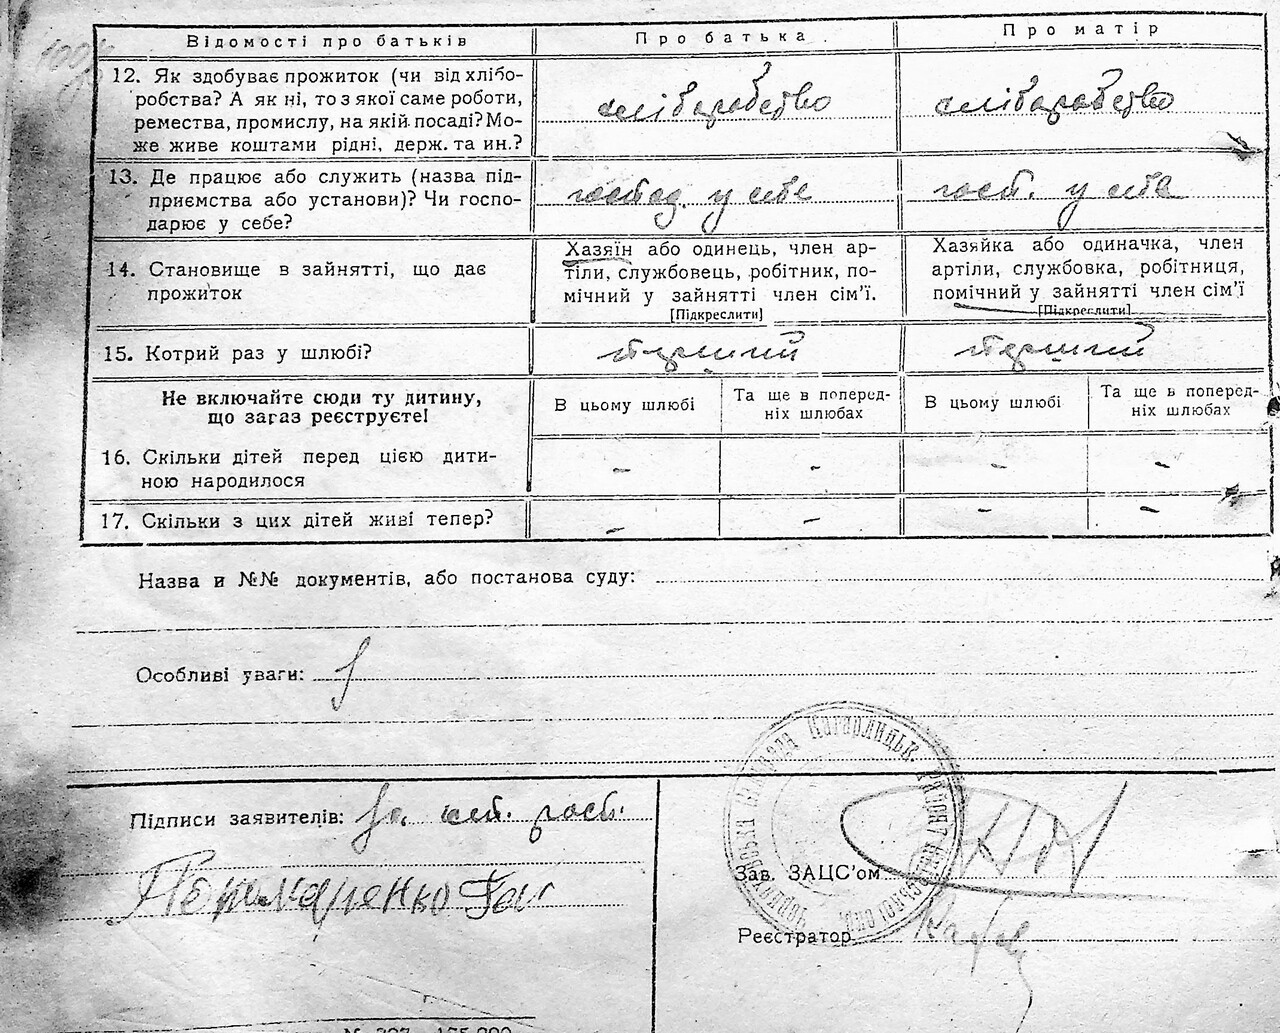 Відомості про батьків
Про батька
Про матір
12. Як здобуває прожиток (чи від хлібо-
робства? А як ні, то з якої саме роботи,
ремества, промислу, на якій посаді? Мо-
же живе коштами рідні, держ. та ин.?
хліборобство
хліборобство
13. Де працює або служить (назва під-
приємства або установи)? Чи госпо-
дарює у себе?
господ. у себе
госп. у себе
14. Становище в зайнятті, що дає
прожиток
Хазяїн або одинець, член ар-
тіли, службовець, робітник, по-
мічний у зайнятті член сім'ї.
[Підкреслити]
Хазяйка або одиначка, член
артіли, службовка, робітниця,
помічний у зайнятті член сім'ї
[Підкреслити]
15. Котрий раз у шлюбі?
перший
перший
Не включайте сюди ту дитину,
що загаз реєструєте!
В цьому шлюбі
Та ще в поперед-
ніх шлюбах
В цьому шлюбі
Та ще в поперед-
ніх шлюбах
16. Скільки дітей перед цією дити-
ною народилося
– – – –
17. Скільки з цих дітей живі тепер?
– – – –
Назва и №№ документів, або постанова суду:
Особливі уваги:
Підписи заявителів:
Зав. ЗАЦС'ом
Реєстратор
Кагарлицьк.